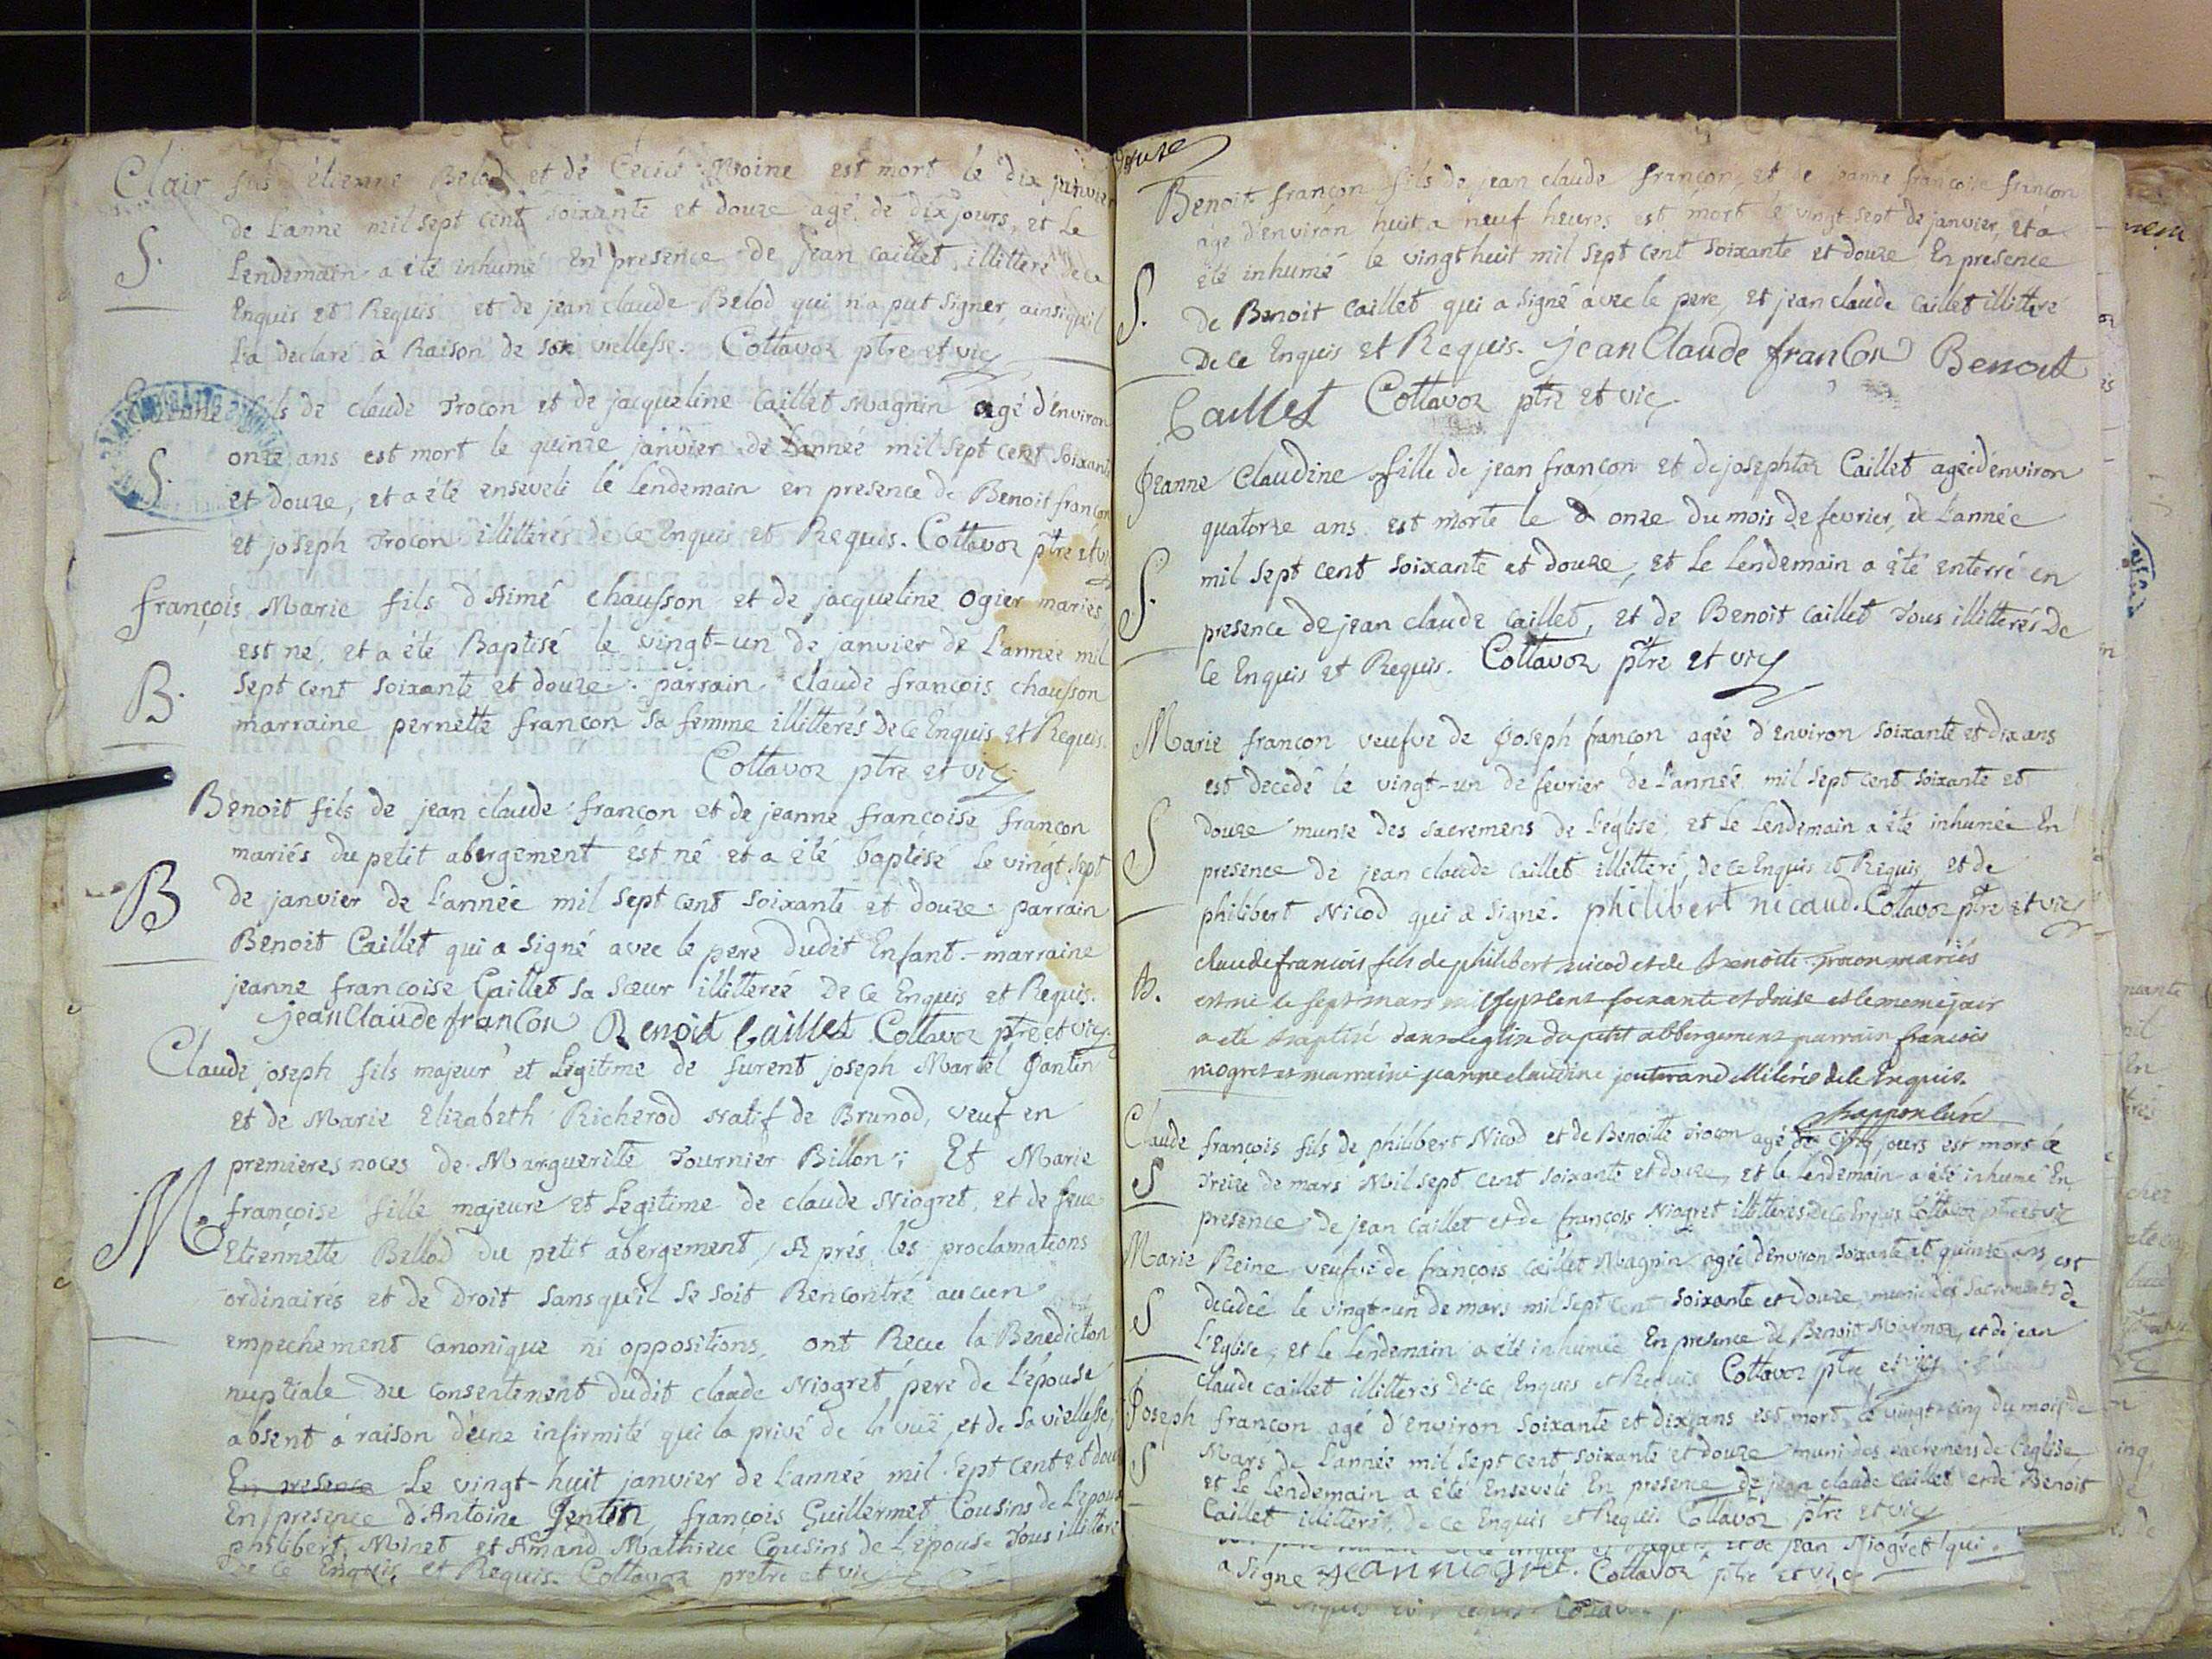 Clair fils étienne Belod et de Cécile Moine est mort le dix janvier
de L'anne mil sept cent soixante et douze agé de dix jours, et Le
S.
Lendemain a été inhumé En presence de Jean Caillet, illitteré de ce
Enquis et Requis et de jean claude Belod qui n'a put signer, ainsi qu'il
L'a declaré à Raison de son viellesse. Cottavoz ptre et vic
fils de claude Trocon et de jacqueline Caillet Magnin agé d'environ
onze ans est mort le quinze janvier de L'année mil sept cent soixante
S.
et douze, et a été enseveli le lendemain en presence de Benoit françon
et joseph Trocon illitterés de ce Enquis et Requis. Cottavoz ptre et vic
françois Marie fils d'Aimé chausson et de jacqueline Ogier mariés
est né, et a été Baptisé le vingt-un de janvier de L'année mil
B.
sept cent soixante et douze. parrain claude françois chausson
marraine pernette françon sa femme illitterés de ce Enquis et Requis.
Cottavoz ptre et vic
Benoit fils de jean claude françon et de jeanne françoise françon
mariés du petit abergement est né et a été baptisé le vingt sept
B
de janvier de L'année mil sept cent soixante et douze parrain
Benoit Caillet qui a signé avec le pere dudit Enfant. marraine
jeanne françoise Caillet sa sœur illitterée De ce Enquis et Requis.
jean Claude franCon Benoit Caillet Cottavoz ptre et vic
Claude joseph fils majeur et Légitime de furent joseph Martel Jantin
et de Marie Elizabeth Richerod Natif de Brunod, veuf en
premieres noces de Marguerite Tournier Billon; Et Marie
M.
françoise fille majeure et Legitime de claude Niogret, et de feue
Etiennette Bellod du petit abergement, Aprés les proclamations
ordinaires et de Droit sans qu'il se soit Rencontré aucun
empechement canonique ni oppositions, ont Recue la Benediction
nuptiale Du consentement dudit claude Niogret pere de L'épouse
absent à raison d'une infirmité qui la privé de la vuë, et de sa viellesse,
En presence Le vingt-huit janvier de L'année mil sept cent et douze
En presence d'Antoine Jentin françois Guillermet Cousins de L'epoux
philibert Minet et Amand Mathieu Cousins de L'epouse Tous illitteré
De ce Enquis et Requis. Cottavoz pretre et vic
douze
Benoit françon fils de jean claude françon et de jeanne françoise françon
agé d'environ huit a neuf heures est mort le vingt-sept de janvier, et a
été inhumé le vingt huit mil sept cent soixante et douze En presence
S.
de Benoit Caillet qui a signé avec le pere, et jean claude Caillet illitteré
De ce Enquis et Requis. jean Claude franCon Benoit
Caillet Cottavoz ptre et vic
Jeanne Claudine fille de jean françon et de josephtaz Caillet agée d'environ
quatorze ans est morte le onze du mois de fevrier, de L'année
S.
mil sept cent soixante et douze, et Le Lendemain a été enterré en
presence de jean claude caillet, et de Benoit caillet Tous illitterés De
Ce Enquis et Requis. Cottavoz ptre et vic
Marie françon veufve de Joseph françon agée d'environ soixante et dix ans
est decédé le vingt-un de fevrier de L'année mil sept cent soixante et
S
douze munie des sacremens de L'église, et Le Lendemain a été inhumée En
presence de jean claude Caillet illitteré, de ce Enquis et Requis, et de
philibert Nicod qui a signé. philibert nicaud. Cottavoz ptre et vic
claude francois fils de philibert nicod et de benoitte trocon mariés
B.
est né le sept mars mil sept cent soixante et douse et le meme jour
a eté baptisé dans leglise du petit abbergement parrain francois
niogret et marraine jeanne claudine jouterand illiterés de ce Enquis.
Chappon curé
Claude françois fils de philibert Nicod et de Benoite Trocon agé de cinq jours est mort le
S
Treize de mars Mil sept cent soixante et douze, et le lendemain a été inhumé En
presence de jean Caillet et de françois Niogret illitterés de ce Enquis Cottavoz ptre et vic
Marie Reine veufve de françois Caillet Magnin agée d'environ soixante et quinze ans est
S
decedée le vingt-un de mars mil sept cent soixante et douze munie des sacrements de
L'Eglise, et le lendemain a été inhumée En presence de Benoit Marmoz, et de jean
claude caillet illitterés de ce Enquis et Requis Cottavoz ptre et vic
Joseph françon agé d'environ soixante et dix ans est mort le vingt-cinq du mois de
S
Mars de L'année mil sept cent soixante et douze muni des sacremens de l'eglise,
et Le Lendemain a été Enseveli En presence de jean claude Caillet et de Benoit
Caillet illitterés, de ce Enquis et Requis Cottavoz ptre et vic
et de jean Niogret qui
a signé jean niogret. Cottavoz ptre et vic